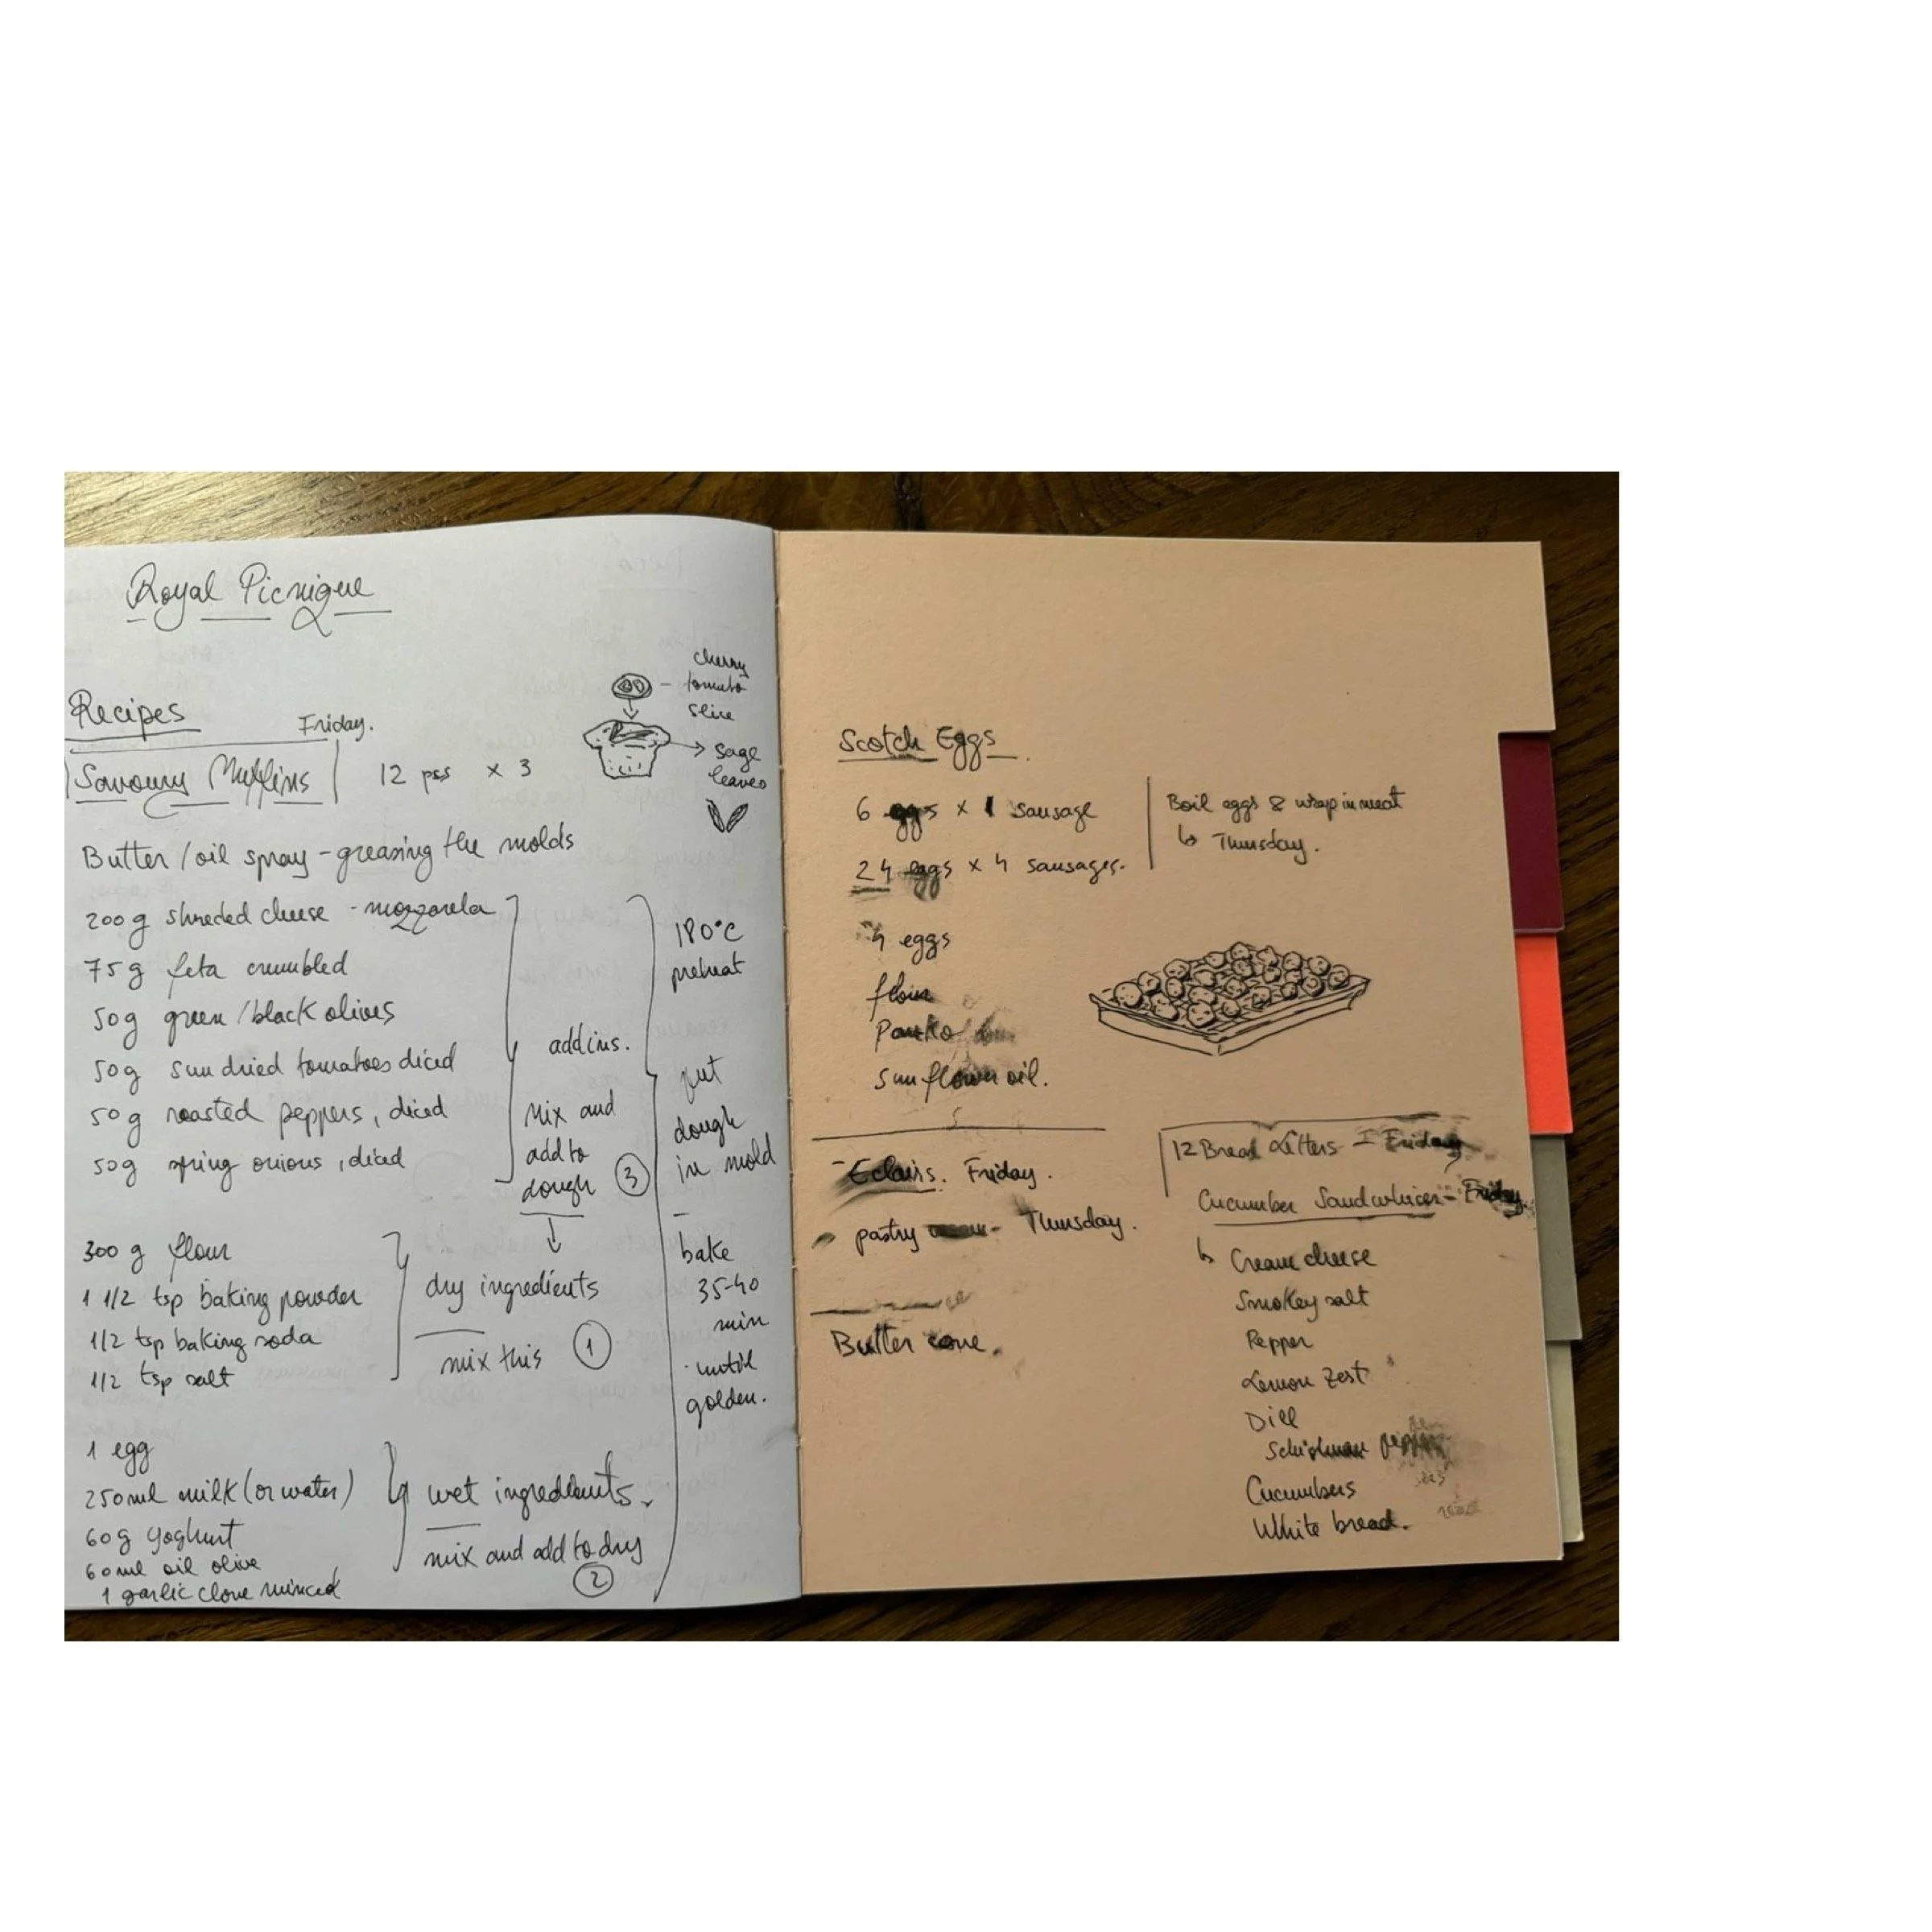 Royal Picnique
Recipes
Friday.
Savoury Muffins
12 pss x 3
cherry
tomato
slice
sage
leaves
Butter / oil spray - greasing the molds
200g shreded cheese - mozzarela
75g feta crumbled
50g green / black olives
50g sun dried tomatoes diced
50g roasted peppers, diced
50g spring onions, diced
add ins.
mix and
add to
dough 3
300 g flour
1 1/2 tsp baking powder
1/2 tsp baking soda
1/2 tsp salt
dry ingredients
mix this 1
1 egg
250ml milk (or water)
60g yoghurt
60ml oil olive
1 garlic clove minced
wet ingredients.
mix and add to dry
2
180°C
preheat
put
dough
in mold
bake
35-40
min
until
golden.
Scotch Eggs.
6 eggs x 1 sausage
24 eggs x 4 sausages.
Boil eggs & wrap in meat
↳ Thursday.
4 eggs
flour
Panko
sunflower oil.
- Eclairs. Friday.
pastry - Thursday.
Butter cone.
12 Bread Letters - Friday
Cucumber Sandwhices - Friday.
↳ Cream cheese
Smokey salt
Pepper
Lemon Zest
Dill
Cucumbers
White bread.